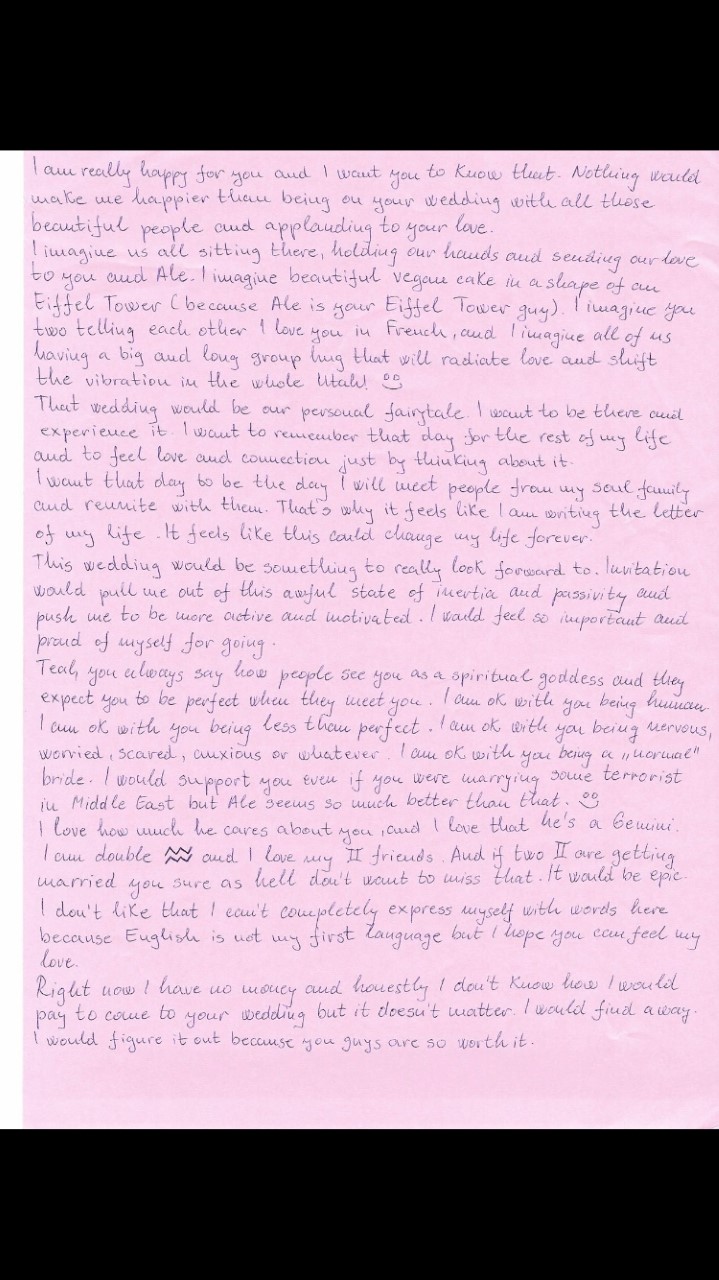 I am really happy for you and I want you to know that. Nothing would
make me happier than being on your wedding with all those
beautiful people and applauding to your love.
I imagine us all sitting there, holding our hands and sending our love
to you and Ale. I imagine beautiful vegan cake in a shape of an
Eiffel Tower (because Ale is your Eiffel Tower guy). I imagine you
two telling each other I love you in French, and I imagine all of us
having a big and long group hug that will radiate love and shift
the vibration in the whole Utah! ☺
That wedding would be our personal fairytale. I want to be there and
experience it. I want to remember that day for the rest of my life
and to feel love and connection just by thinking about it.
I want that day to be the day I will meet people from my soul family
and reunite with them. That's why it feels like I am writing the letter
of my life. It feels like this could change my life forever.
This wedding would be something to really look forward to. Invitation
would pull me out of this awful state of inertia and passivity and
push me to be more active and motivated. I would feel so important and
proud of myself for going.
Teal, you always say how people see you as a spiritual goddess and they
expect you to be perfect when they meet you. I am ok with you being human
I am ok with you being less than perfect. I am ok with you being nervous,
worried, scared, anxious or whatever. I am ok with you being a „normal"
bride. I would support you even if you were marrying some terrorist
in Middle East but Ale seems so much better than that. ☺
I love how much he cares about you, and I love that he's a Gemini.
I am double ♒ and I love my ♊ friends. And if two ♊ are getting
married you sure as hell don't want to miss that. It would be epic.
I don't like that I can't completely express myself with words here
because English is not my first language but I hope you can feel my
love.
Right now I have no money and honestly I don't know how I would
pay to come to your wedding but it doesn't matter. I would find a way.
I would figure it out because you guys are so worth it.